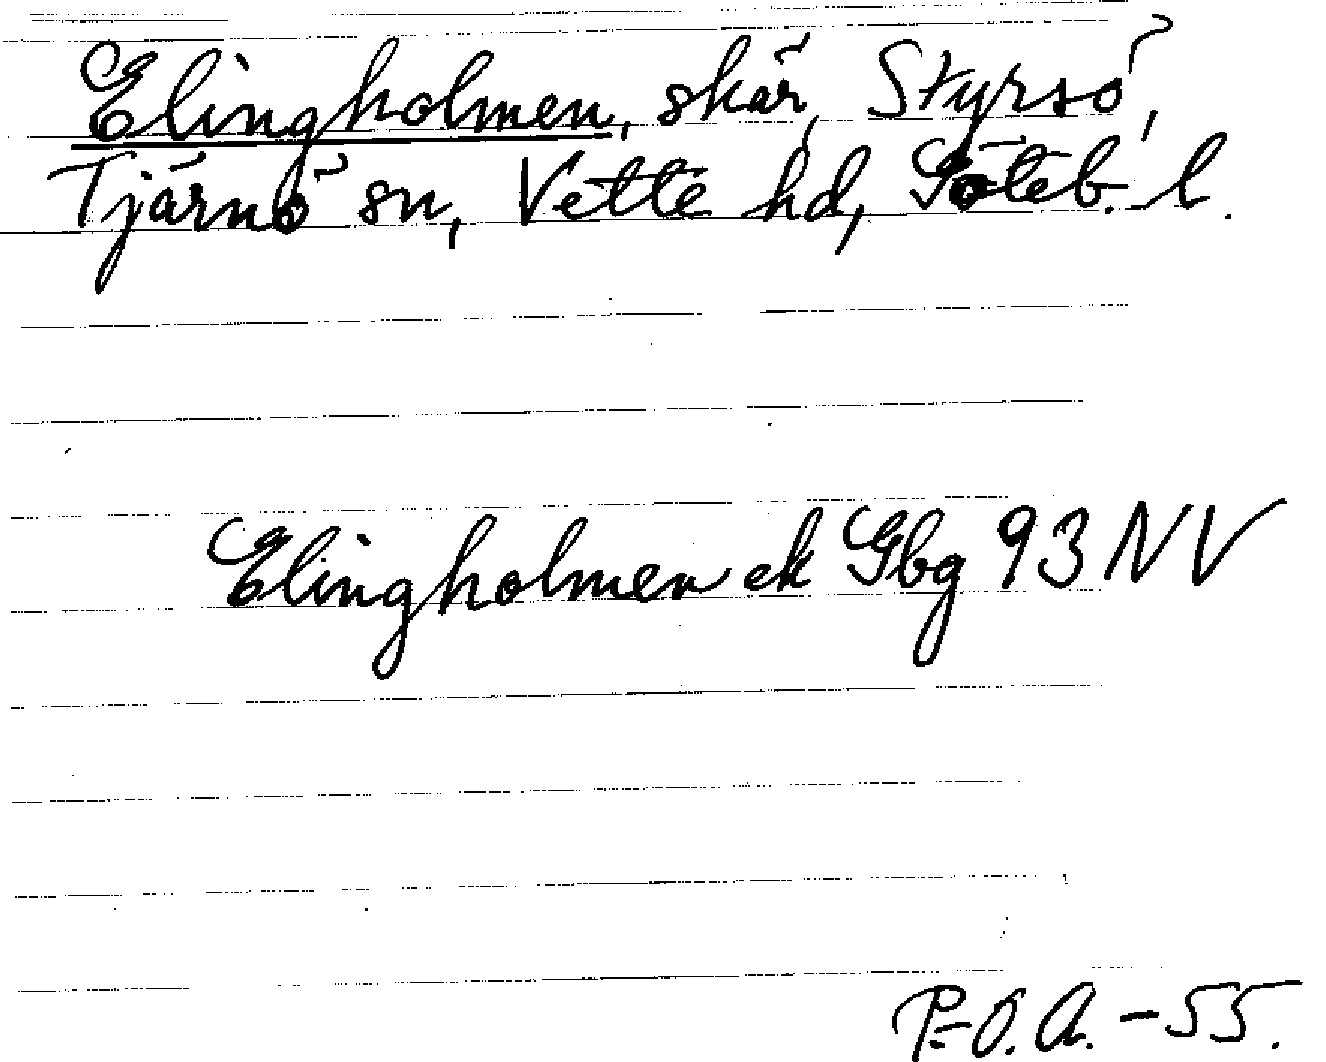 Elingholmen, skär, Styrsö,
Tjärnö sn, Vette hd, Göteb. l.
Elingholmen ek Gbg 93 NV
P-O.A. - 55.